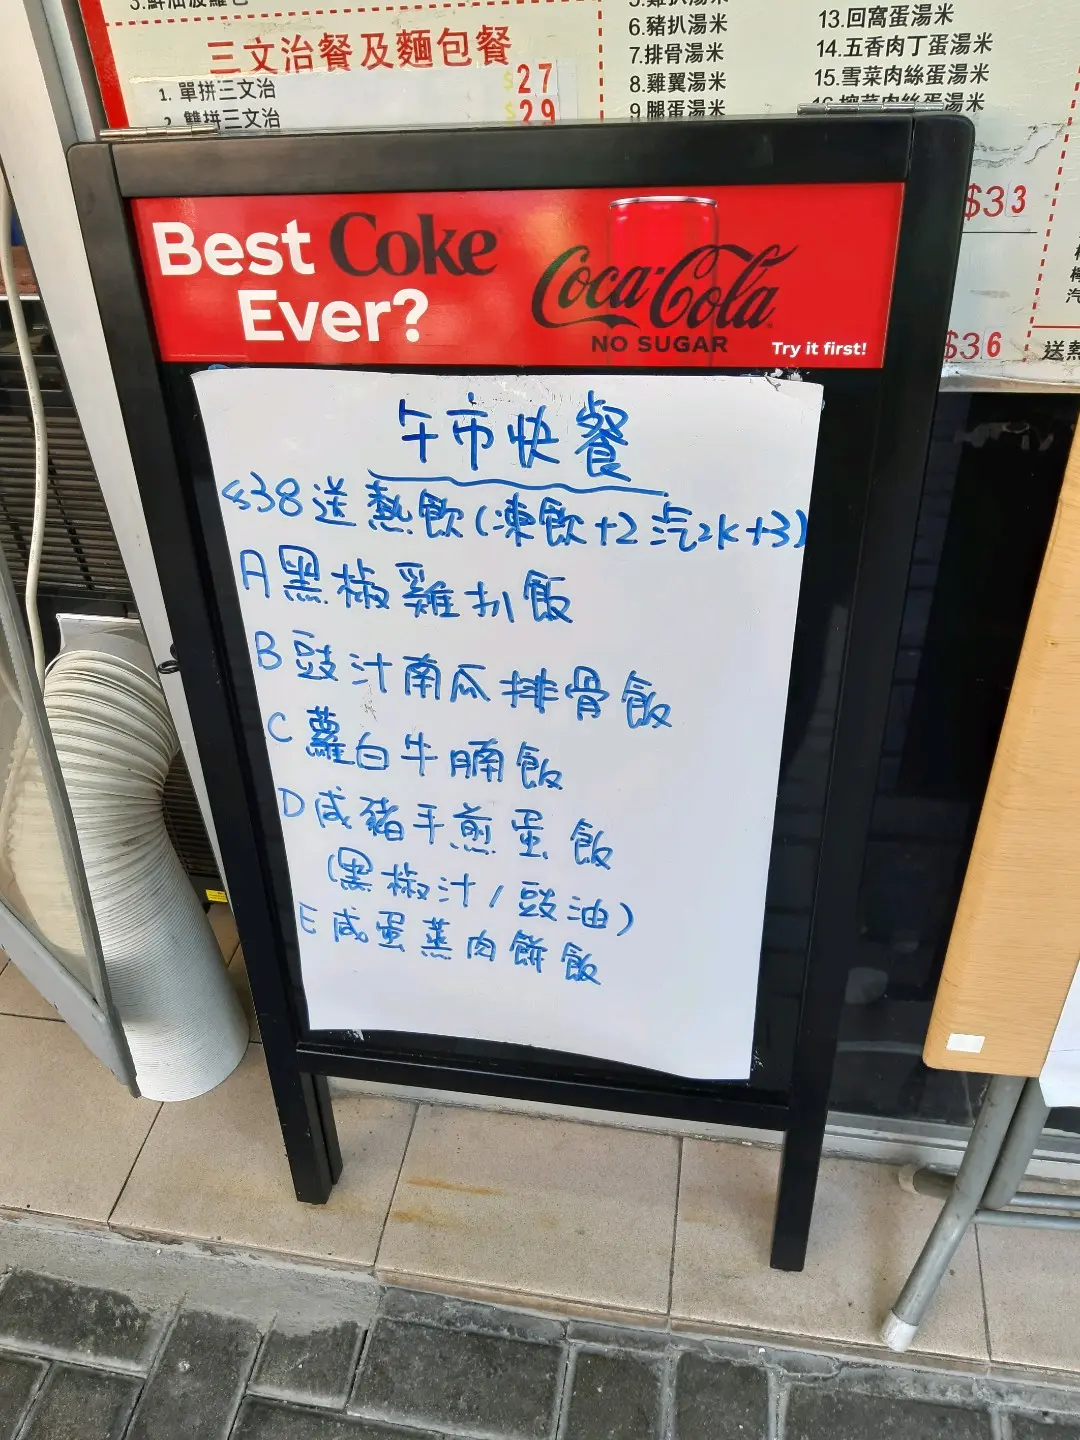 三文治餐及麵包餐
1. 單拼三文治 $27
2. 雙拼三文治 $29
6.豬扒湯米
7.排骨湯米
8.雞翼湯米
9.腿蛋湯米
13.回窩蛋湯米
14.五香肉丁蛋湯米
15.雪菜肉絲蛋湯米
$33
$36
送熱
Best Coke
Ever?
Coca-Cola
NO SUGAR
Try it first!
午市快餐
$38送熱飲(凍飲+2 汽水+3)
A黑椒雞扒飯
B豉汁南瓜排骨飯
C蘿白牛腩飯
D咸豬手煎蛋飯
(黑椒汁/豉油)
E咸蛋蒸肉餅飯